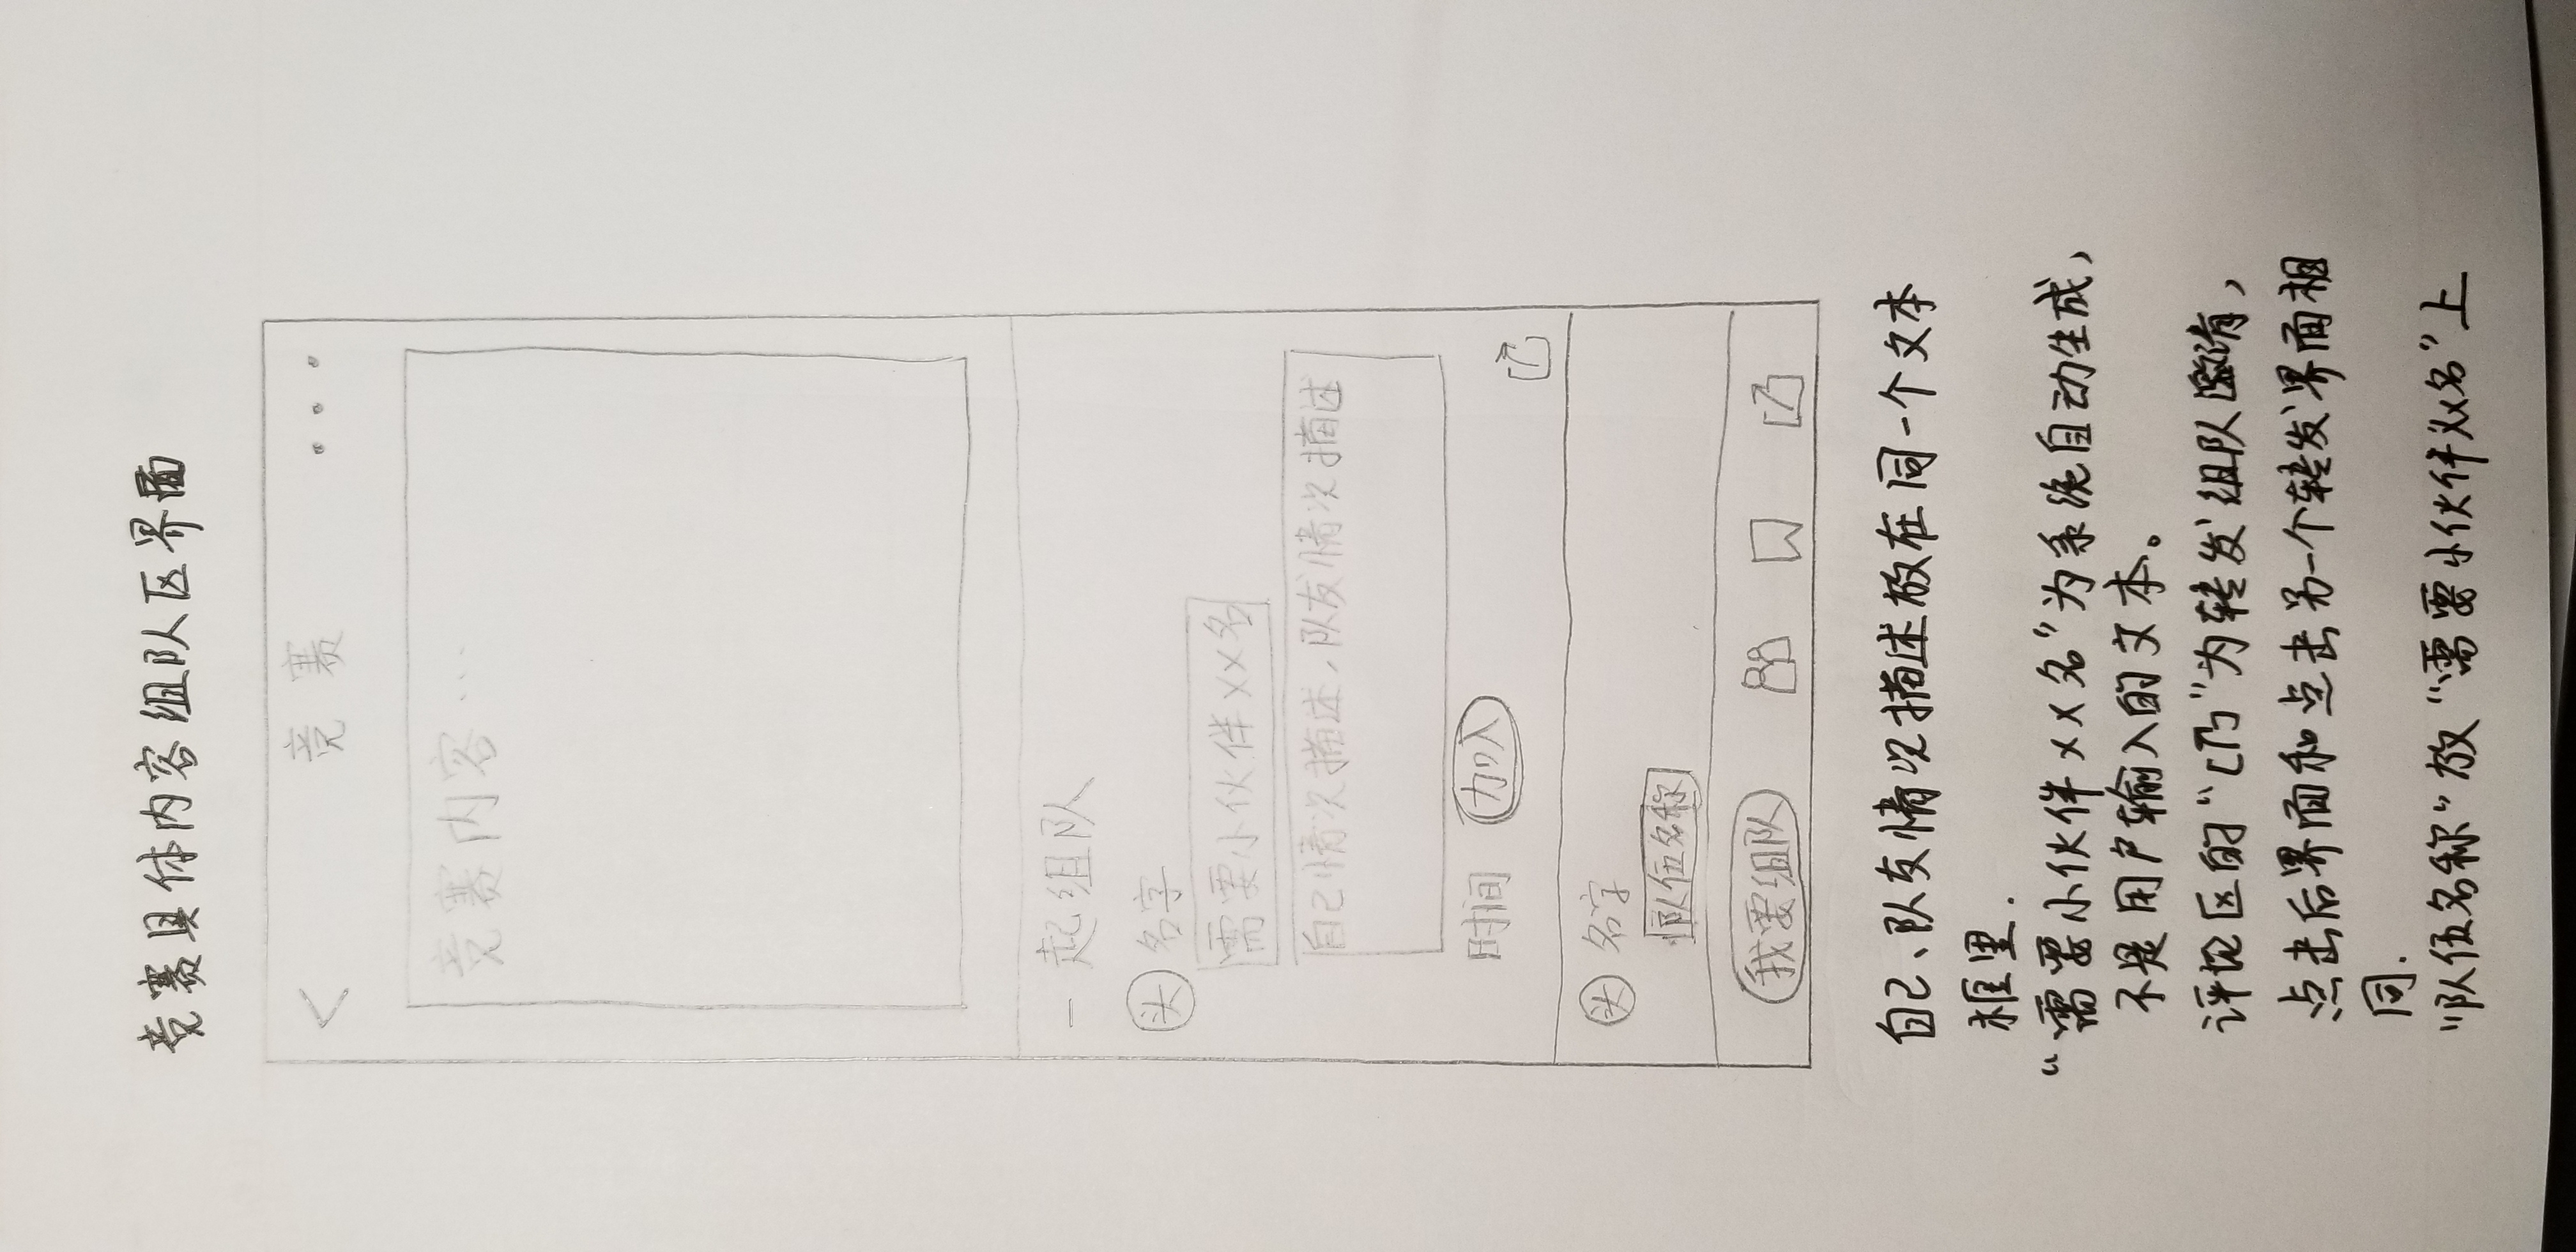 竞赛具体内容组队区界面
< 竞赛 ...
竞赛内容...
一起组队
头 名字
需要小伙伴XX名
自己情况描述、队友情况描述
时间 加入
头 名字
队伍名称
我要组队
自己、队友情况描述放在同一个文本
框里.
“需要小伙伴XX名”为系统自动生成,
不是用户输入的文本。
评论区的“ ”为转发组队邀请,
点击后界面和点击另一个转发界面相
同.
“队伍名称”放“需要小伙伴XX名”上